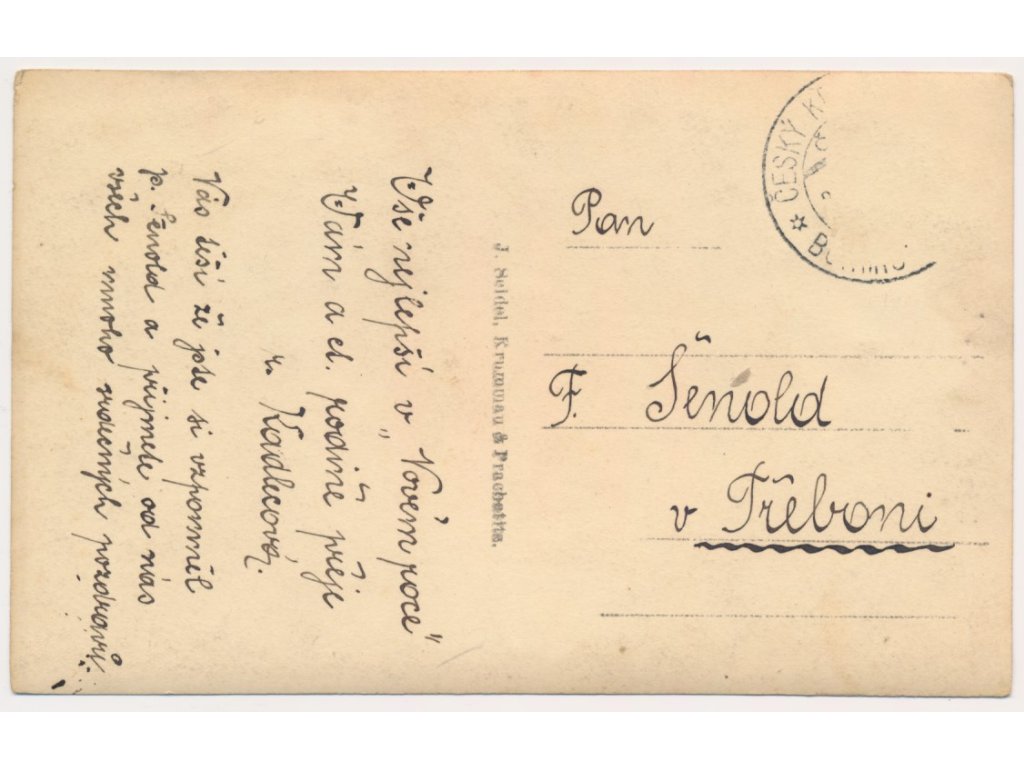 Vše nejlepší v „Novém roce"
Vám a ct. rodině přeje
R. Kadlecová.
Vás těší že jste si vzpomněl
p. Šenold a přijměte od nás
všech mnoho srdečných pozdravů.
J. Seidel, Krummau & Prachatitz.
ČESKÝ
Pan
F. Šenold
v Třeboni